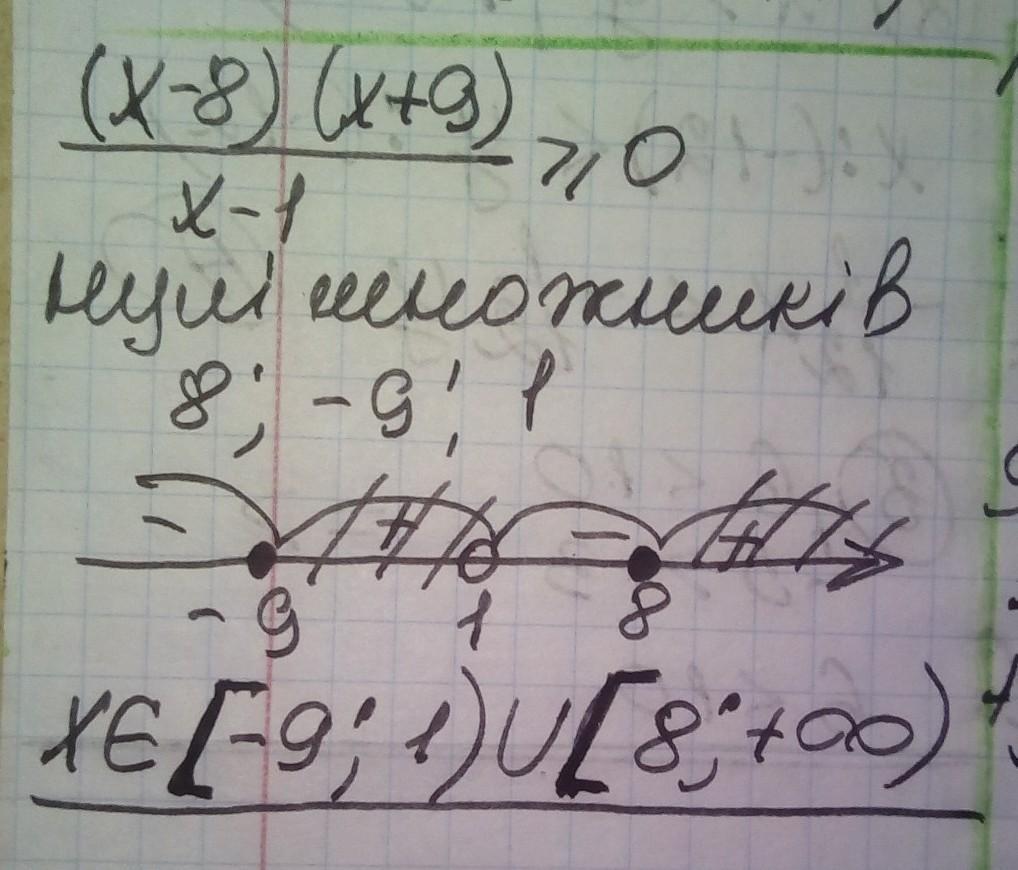 (x-8) (x+9)
x-1
⩾0
нулі множників
8; -9; 1
- + - +
-9 1 8
x∈[-9; 1)∪[8;+∞)